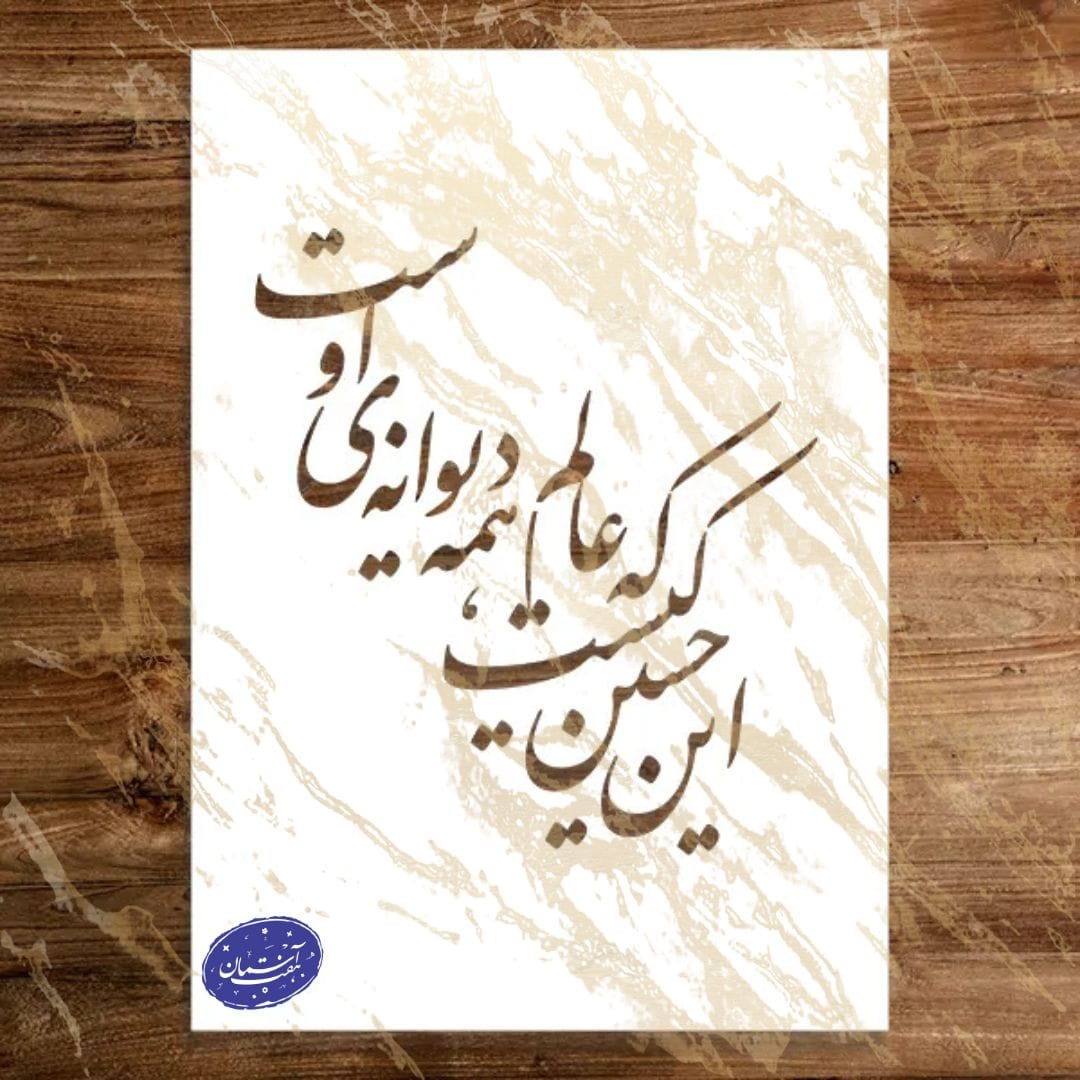 این حسین کیست که عالم همه دیوانه‌ی اوست
هفت آسمان